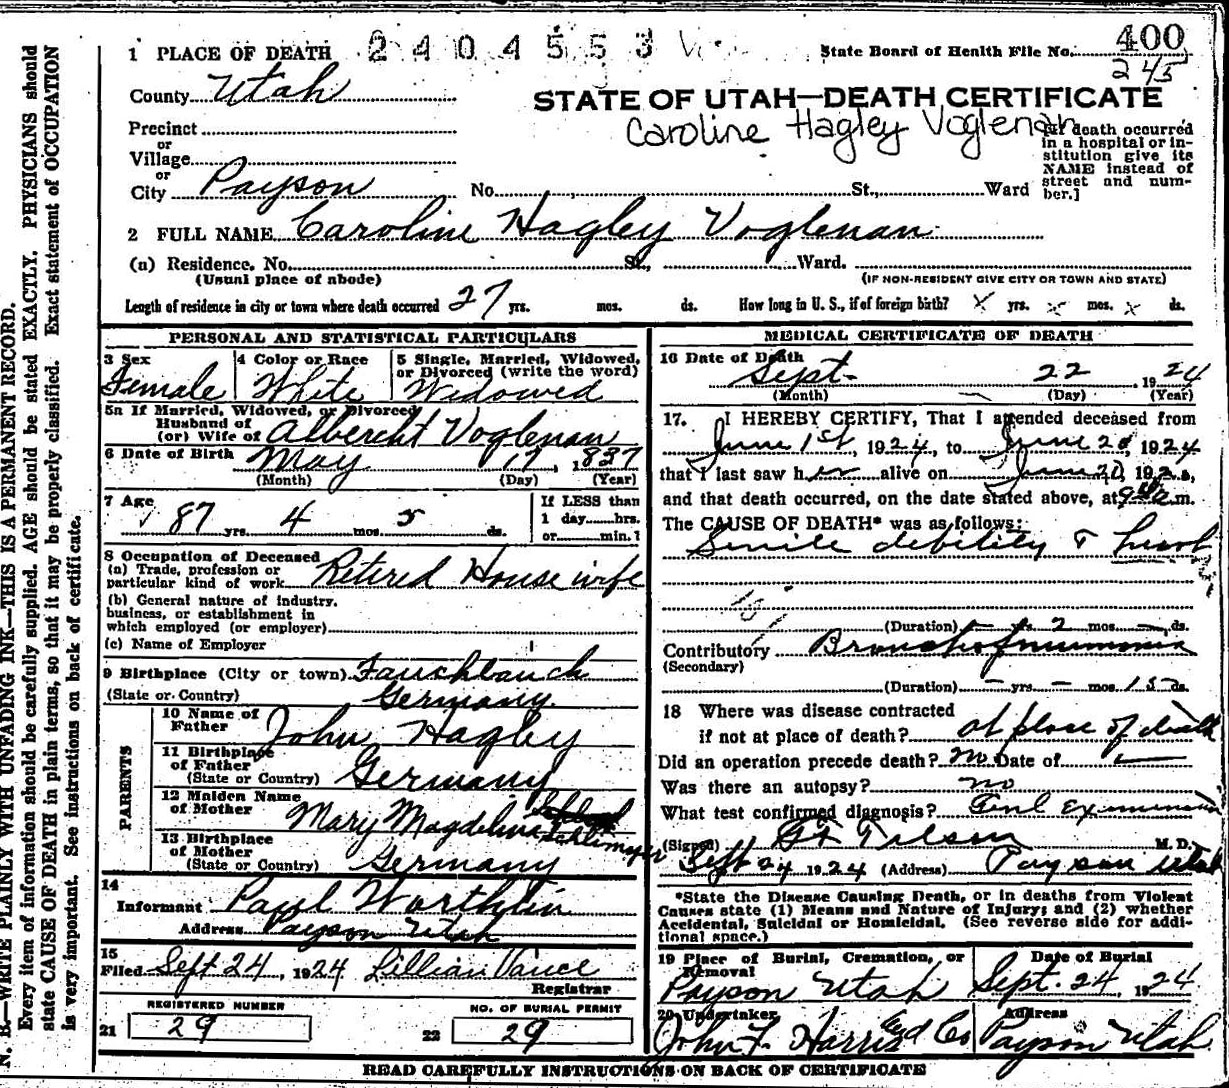 1 PLACE OF DEATH 2404553
State Board of Health File No. 400
245
County Utah
STATE OF UTAH—DEATH CERTIFICATE
Caroline Hagley Voglenan
Precinct
or
Village
or
City Payson No. St., Ward
[If death occurred
in a hospital or in-
stitution give its
NAME instead of
street and num-
ber.]
2 FULL NAME Caroline Hagley Voglenan
(a) Residence, No. St., Ward.
(Usual place of abode)
(IF NON-RESIDENT GIVE CITY OR TOWN AND STATE)
Length of residence in city or town where death occurred 27 yrs. mos. ds. How long in U. S., if of foreign birth? x yrs. x mos. x ds.
PERSONAL AND STATISTICAL PARTICULARS
3 Sex
Female
4 Color or Race
White
5 Single, Married, Widowed,
or Divorced (write the word)
Widowed
5a If Married, Widowed, or Divorced
Husband of
(or) Wife of Albercht Voglenan
6 Date of Birth May 17, 1837
(Month) (Day) (Year)
7 Age
87 yrs. 4 mos 5 ds.
If LESS than
1 day hrs.
or min.?
8 Occupation of Deceased
(a) Trade, profession or
particular kind of work Retired Housewife
(b) General nature of industry,
business, or establishment in
which employed (or employer)
(c) Name of Employer
9 Birthplace (City or town) Fauchbauch
(State or Country) Germany.
PARENTS
10 Name of
Father John Hagley
11 Birthplace
of Father
(State or Country) Germany
12 Maiden Name
of Mother Mary Magdeline
13 Birthplace
of Mother
(State or Country) Germany
14
Informant Paul Worthlin
Address Payson Utah
15
Filed Sept 24, 1924 Lillian Vance
Registrar
REGISTERED NUMBER
21 29
NO. OF BURIAL PERMIT
22 29
MEDICAL CERTIFICATE OF DEATH
16 Date of Death
Sept- 22, 1924
(Month) (Day) (Year)
17. I HEREBY CERTIFY, That I attended deceased from
June 1st, 1924, to June 20, 1924
that I last saw her alive on June 20, 192
and that death occurred, on the date stated above, at 9 a m.
The CAUSE OF DEATH* was as follows:
Senile debility &
(Duration) — yrs 2 mos —, ds.
Contributory Bronchopneumonia
(Secondary)
(Duration) — yrs — mos 15 ds.
18 Where was disease contracted
if not at place of death? at place of death
Did an operation precede death? no Date of —
Was there an autopsy? no
What test confirmed diagnosis? Examination
(Signed) Tilson M. D.
Sept 24 1924 (Address) Payson Utah
*State the Disease Causing Death, or in deaths from Violent
Causes state (1) Means and Nature of Injury; and (2) whether
Accidental, Suicidal or Homicidal. (See reverse side for addi-
tional space.)
19 Place of Burial, Cremation, or
Removal
Payson Utah
Date of Burial
Sept. 24, 1924
20 Undertaker
John F. Harris Co
Address
Payson Utah
READ CAREFULLY INSTRUCTIONS ON BACK OF CERTIFICATE
N. B.—WRITE PLAINLY WITH UNFADING INK—THIS IS A PERMANENT RECORD.
Every item of information should be carefully supplied. AGE should be stated EXACTLY. PHYSICIANS should
state CAUSE OF DEATH in plain terms, so that it may be properly classified. Exact statement of OCCUPATION
is very important. See instructions on back of certificate.